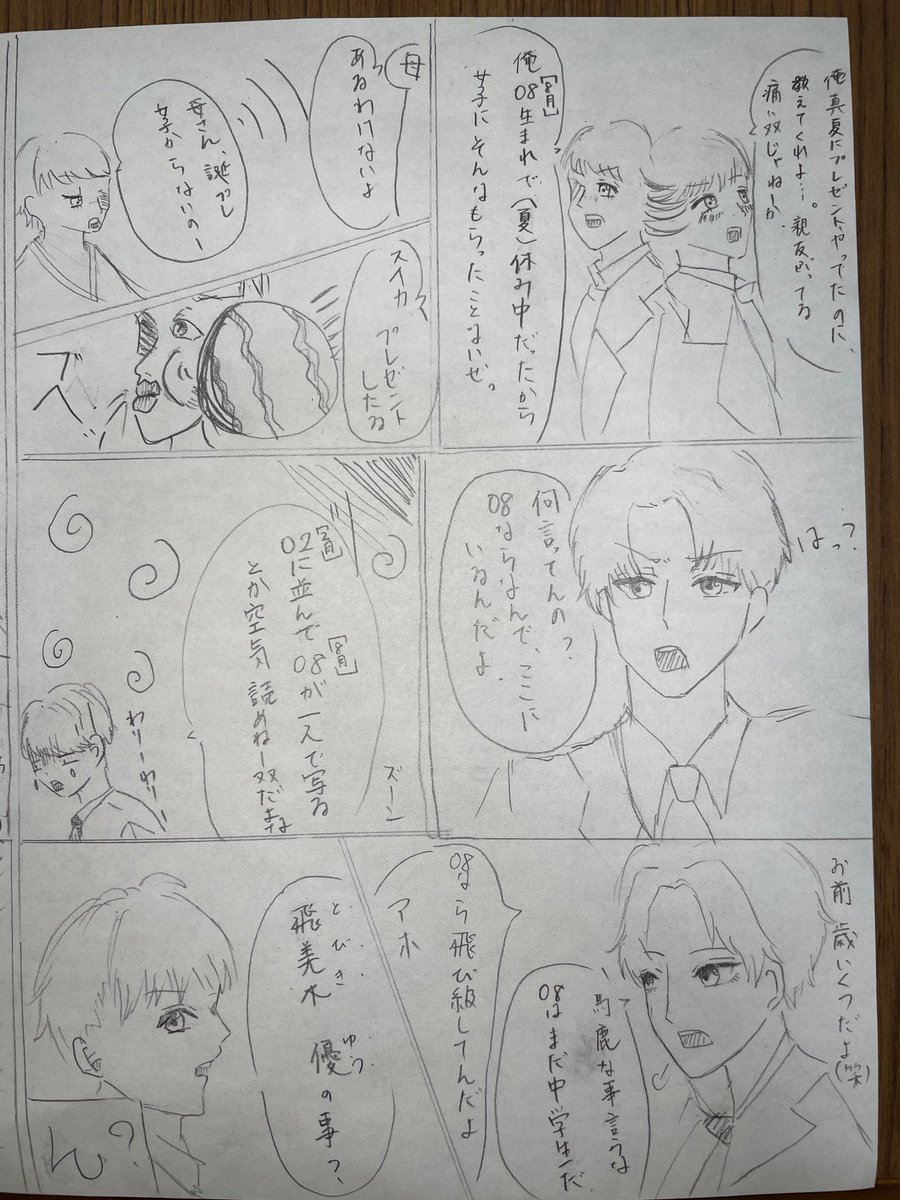 俺真夏にプレゼントやってたのに、
教えてくれよ…。親友ぶってる
痛い奴じゃねーか
[8月]
俺08生まれで(夏)休み中だったから
女子にそんなもらったことないぜ。
母
あるわけないよ
母さん、誕プレ
女子からないのー
スイカ プレゼント
したる
ブベ
はっ?
何言ってんの?
08ならなんで、ここに
いるんだよ
ズーン
02に並んで08が一人で写る
とか空気 読めねー奴だよな
わりーわりー
お前 歳いくつだよ(笑)
馬鹿な事言うな
08はまだ中学生だ
08なら飛び級してんだよ
アホ
とびき ゆう
飛美木 優の事?
ん?